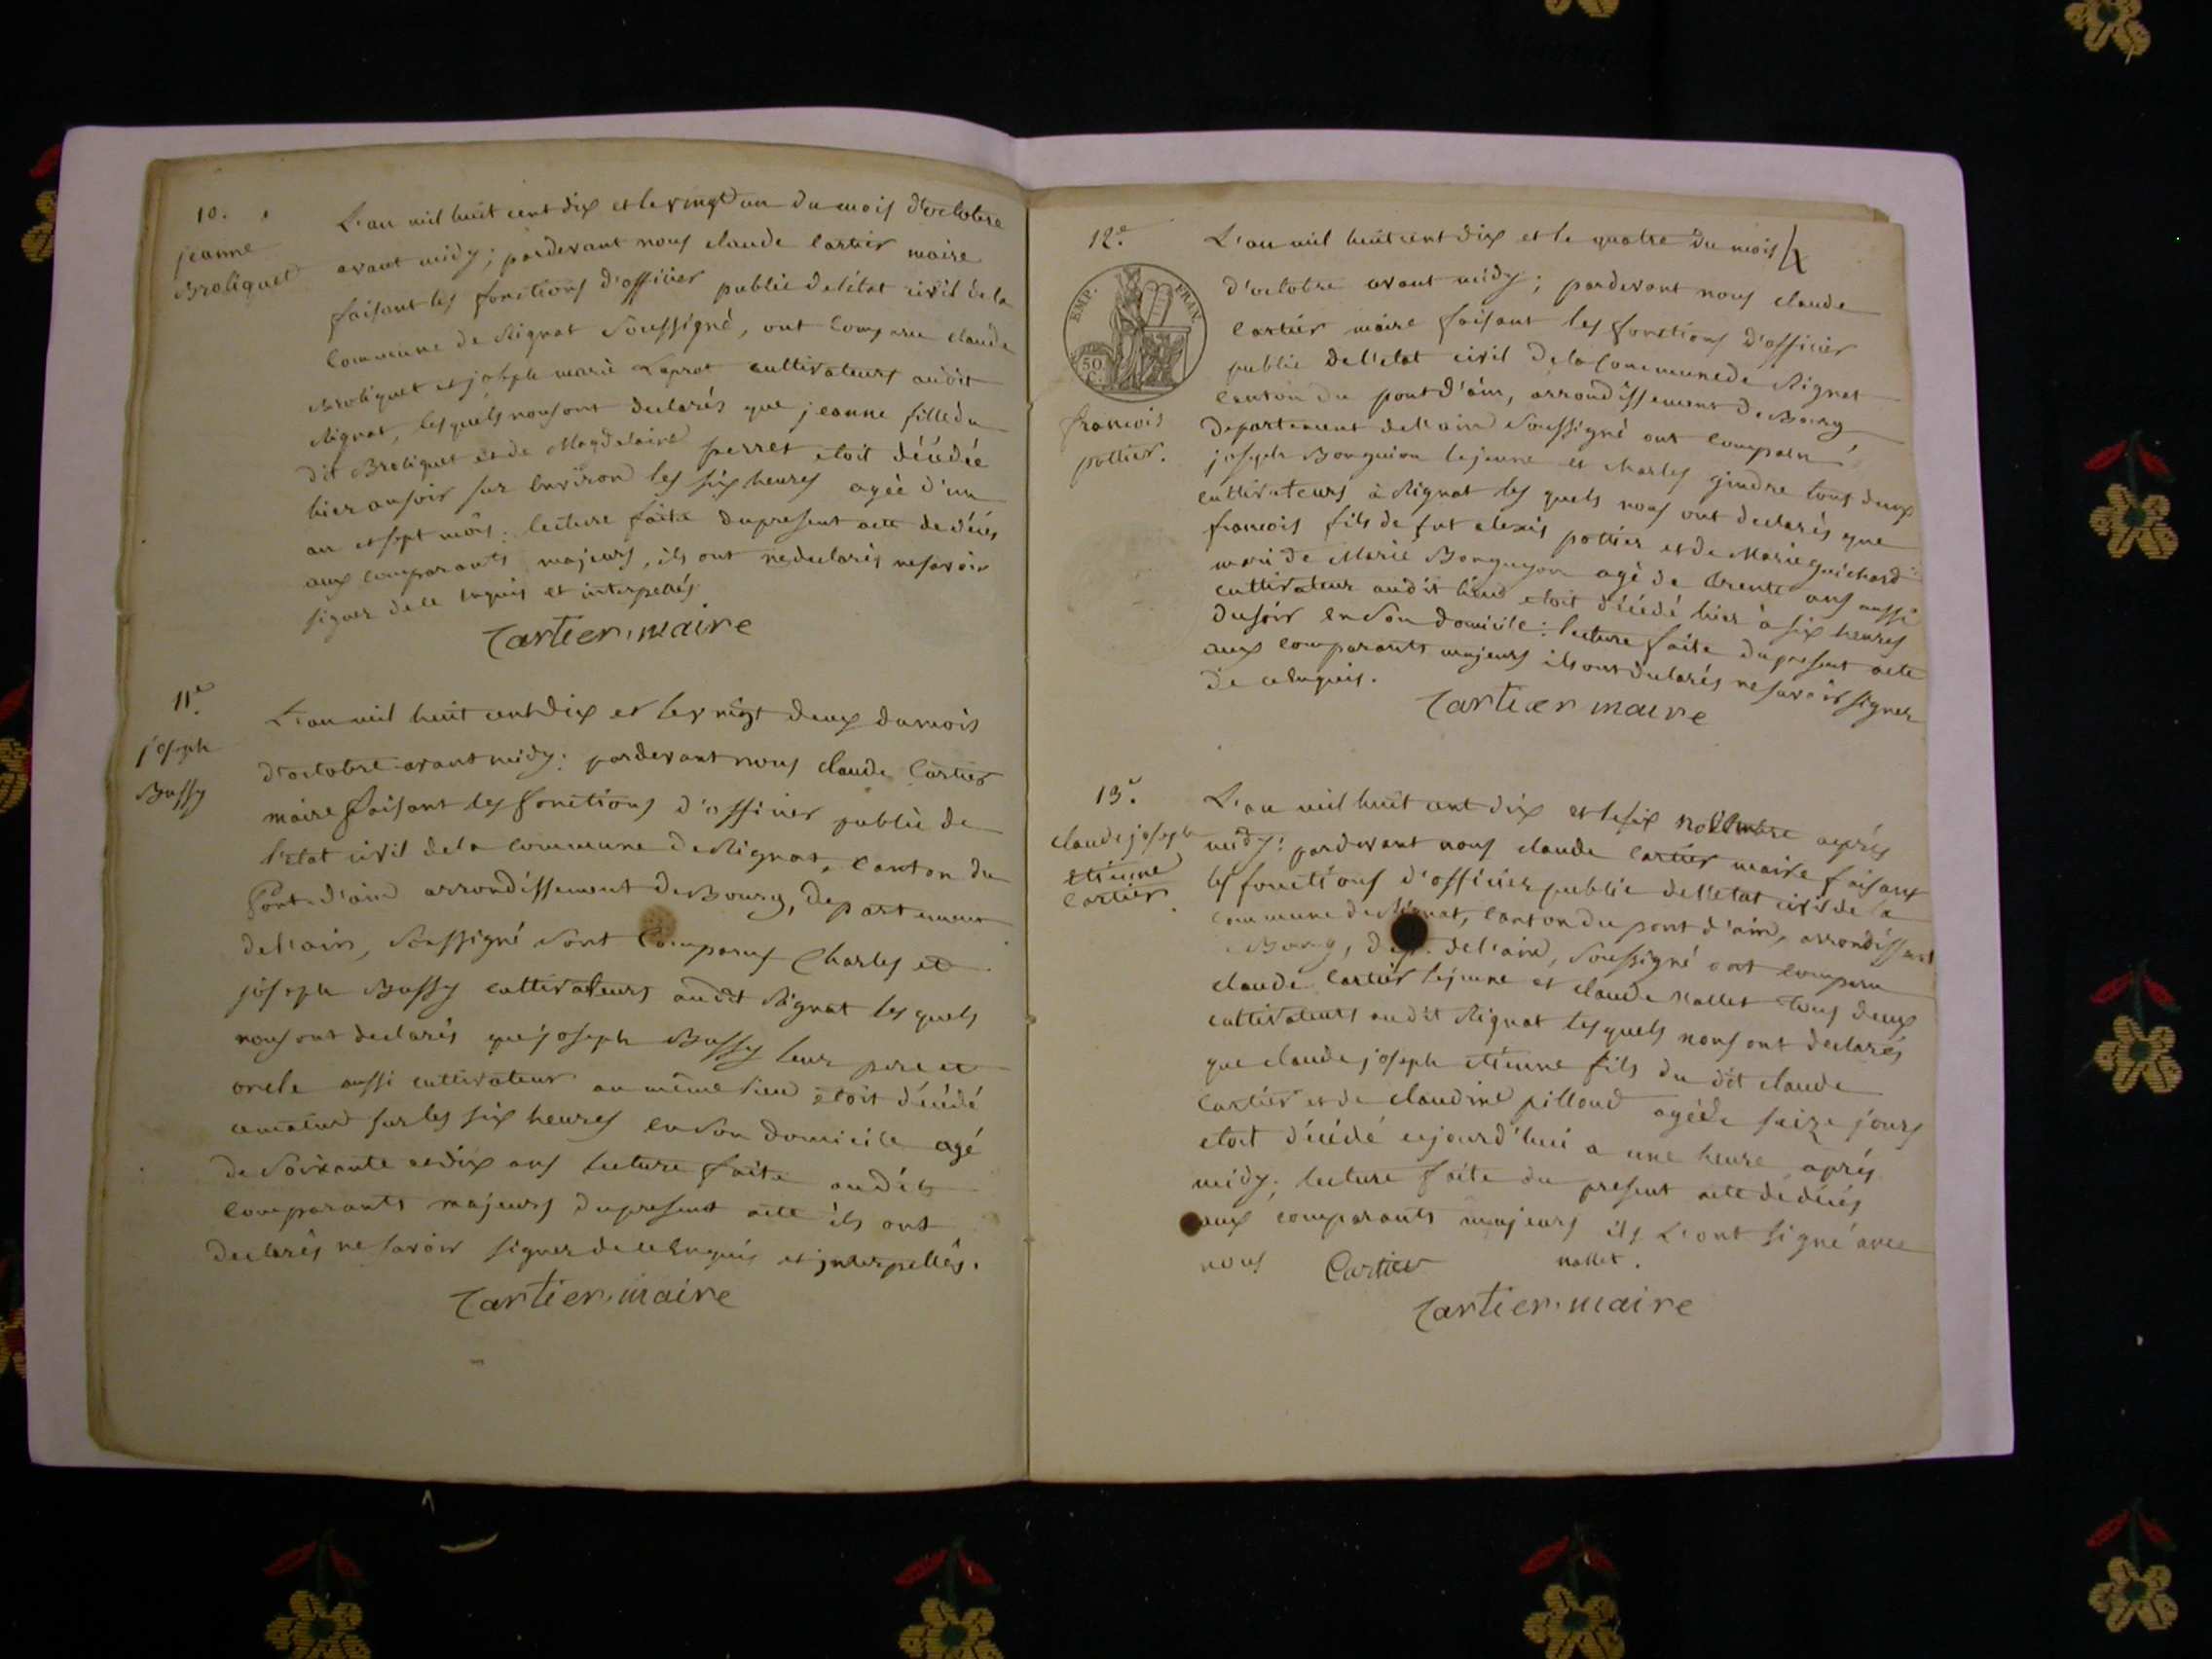 10.
jeanne
Broliquet
L'an mil huit cent dix et le vingt un du mois d'octobre
avant midy; pardevant nous claude Cartier maire
faisant les fonctions d'officier public de l'état civil de la
Commune de Rignat Soussigné, ont Comparu claude
Broliquet et joseph marie Laprot cultivateurs audit
Rignat, lesquels nous ont declarés que jeanne fille du
dit Broliquet et de Magdelaine perret etoit décédée
hier au soir sur Environ les six heures agée d'un
an et sept mois: lecture faite du present acte de décés
aux comparants majeurs, ils ont declarés ne savoir
signer de ce Enquis et interpellés
Cartier, maire
11.e
joseph
Bussy
L'an mil huit cent dix et le vingt deux du mois
d'octobre avant midy: pardevant nous claude Cartier
maire faisant les fonctions d'officier public de
l'état civil de la commune de Rignat, canton du
Pont-d'ain arrondissement de Bourg, departement
de l'ain, Soussigné Sont Comparus Charles et
joseph Bussy cultivateurs audit Rignat les quels
nous ont declarés que joseph Bussy leur pere et
oncle aussi cultivateur au même lieu etoit décédé
ce matin sur les six heures en Son domicile agé
de Soixante et dix ans lecture faite audits
comparants majeurs du present acte ils ont
declarés ne savoir signer de ce Enquis et interpellés.
Cartier, maire
12.e
EMP. FRAN.
50 C.
francois
pottier.
L'an mil huit cent dix et le quatre du mois
d'octobre avant midy; pardevant nous claude
Cartier maire faisant les fonctions d'officier
public de l'etat civil de la Commune de Rignat
canton du pont d'ain, arrondissement de Bourg,
departement de l'ain Soussigné ont comparu
joseph Bonguion lejeune et charles gindre tous deux
cultivateurs à Rignat les quels nous ont declarés que
francois fils de fut alexis pottier et de Marie guichard
mari de Marie Bonguyon agé de trente ans aussi
cultivateur audit lieu etoit décédé hier à six heures
du soir en Son domicile: lecture faite du present acte
aux comparants majeurs ils ont declarés ne savoir signer
de ce Enquis.
Cartier maire
13.e
claude joseph
etienne
Cartier.
L'an mil huit cent dix et le six novembre après
midy: pardevant nous claude Cartier maire faisant
les fonctions d'officier public de l'etat civil de la
commune de Rignat, canton du pont d'ain, arrondissent
Bourg, de l'ain, Soussigné ont comparu
claude Cartier lejeune et claude Nallet tous deux
cultivateurs audit Rignat lesquels nous ont declarés
que claude joseph etienne fils du dit claude
Cartier et de claudine pilloud agé de seize jours
etoit décédé aujourd'hui a une heure après
midy; lecture faite du present acte de décés
aux comparants majeurs ils L'ont signé avec
nous Cartier nallet.
Cartier, maire